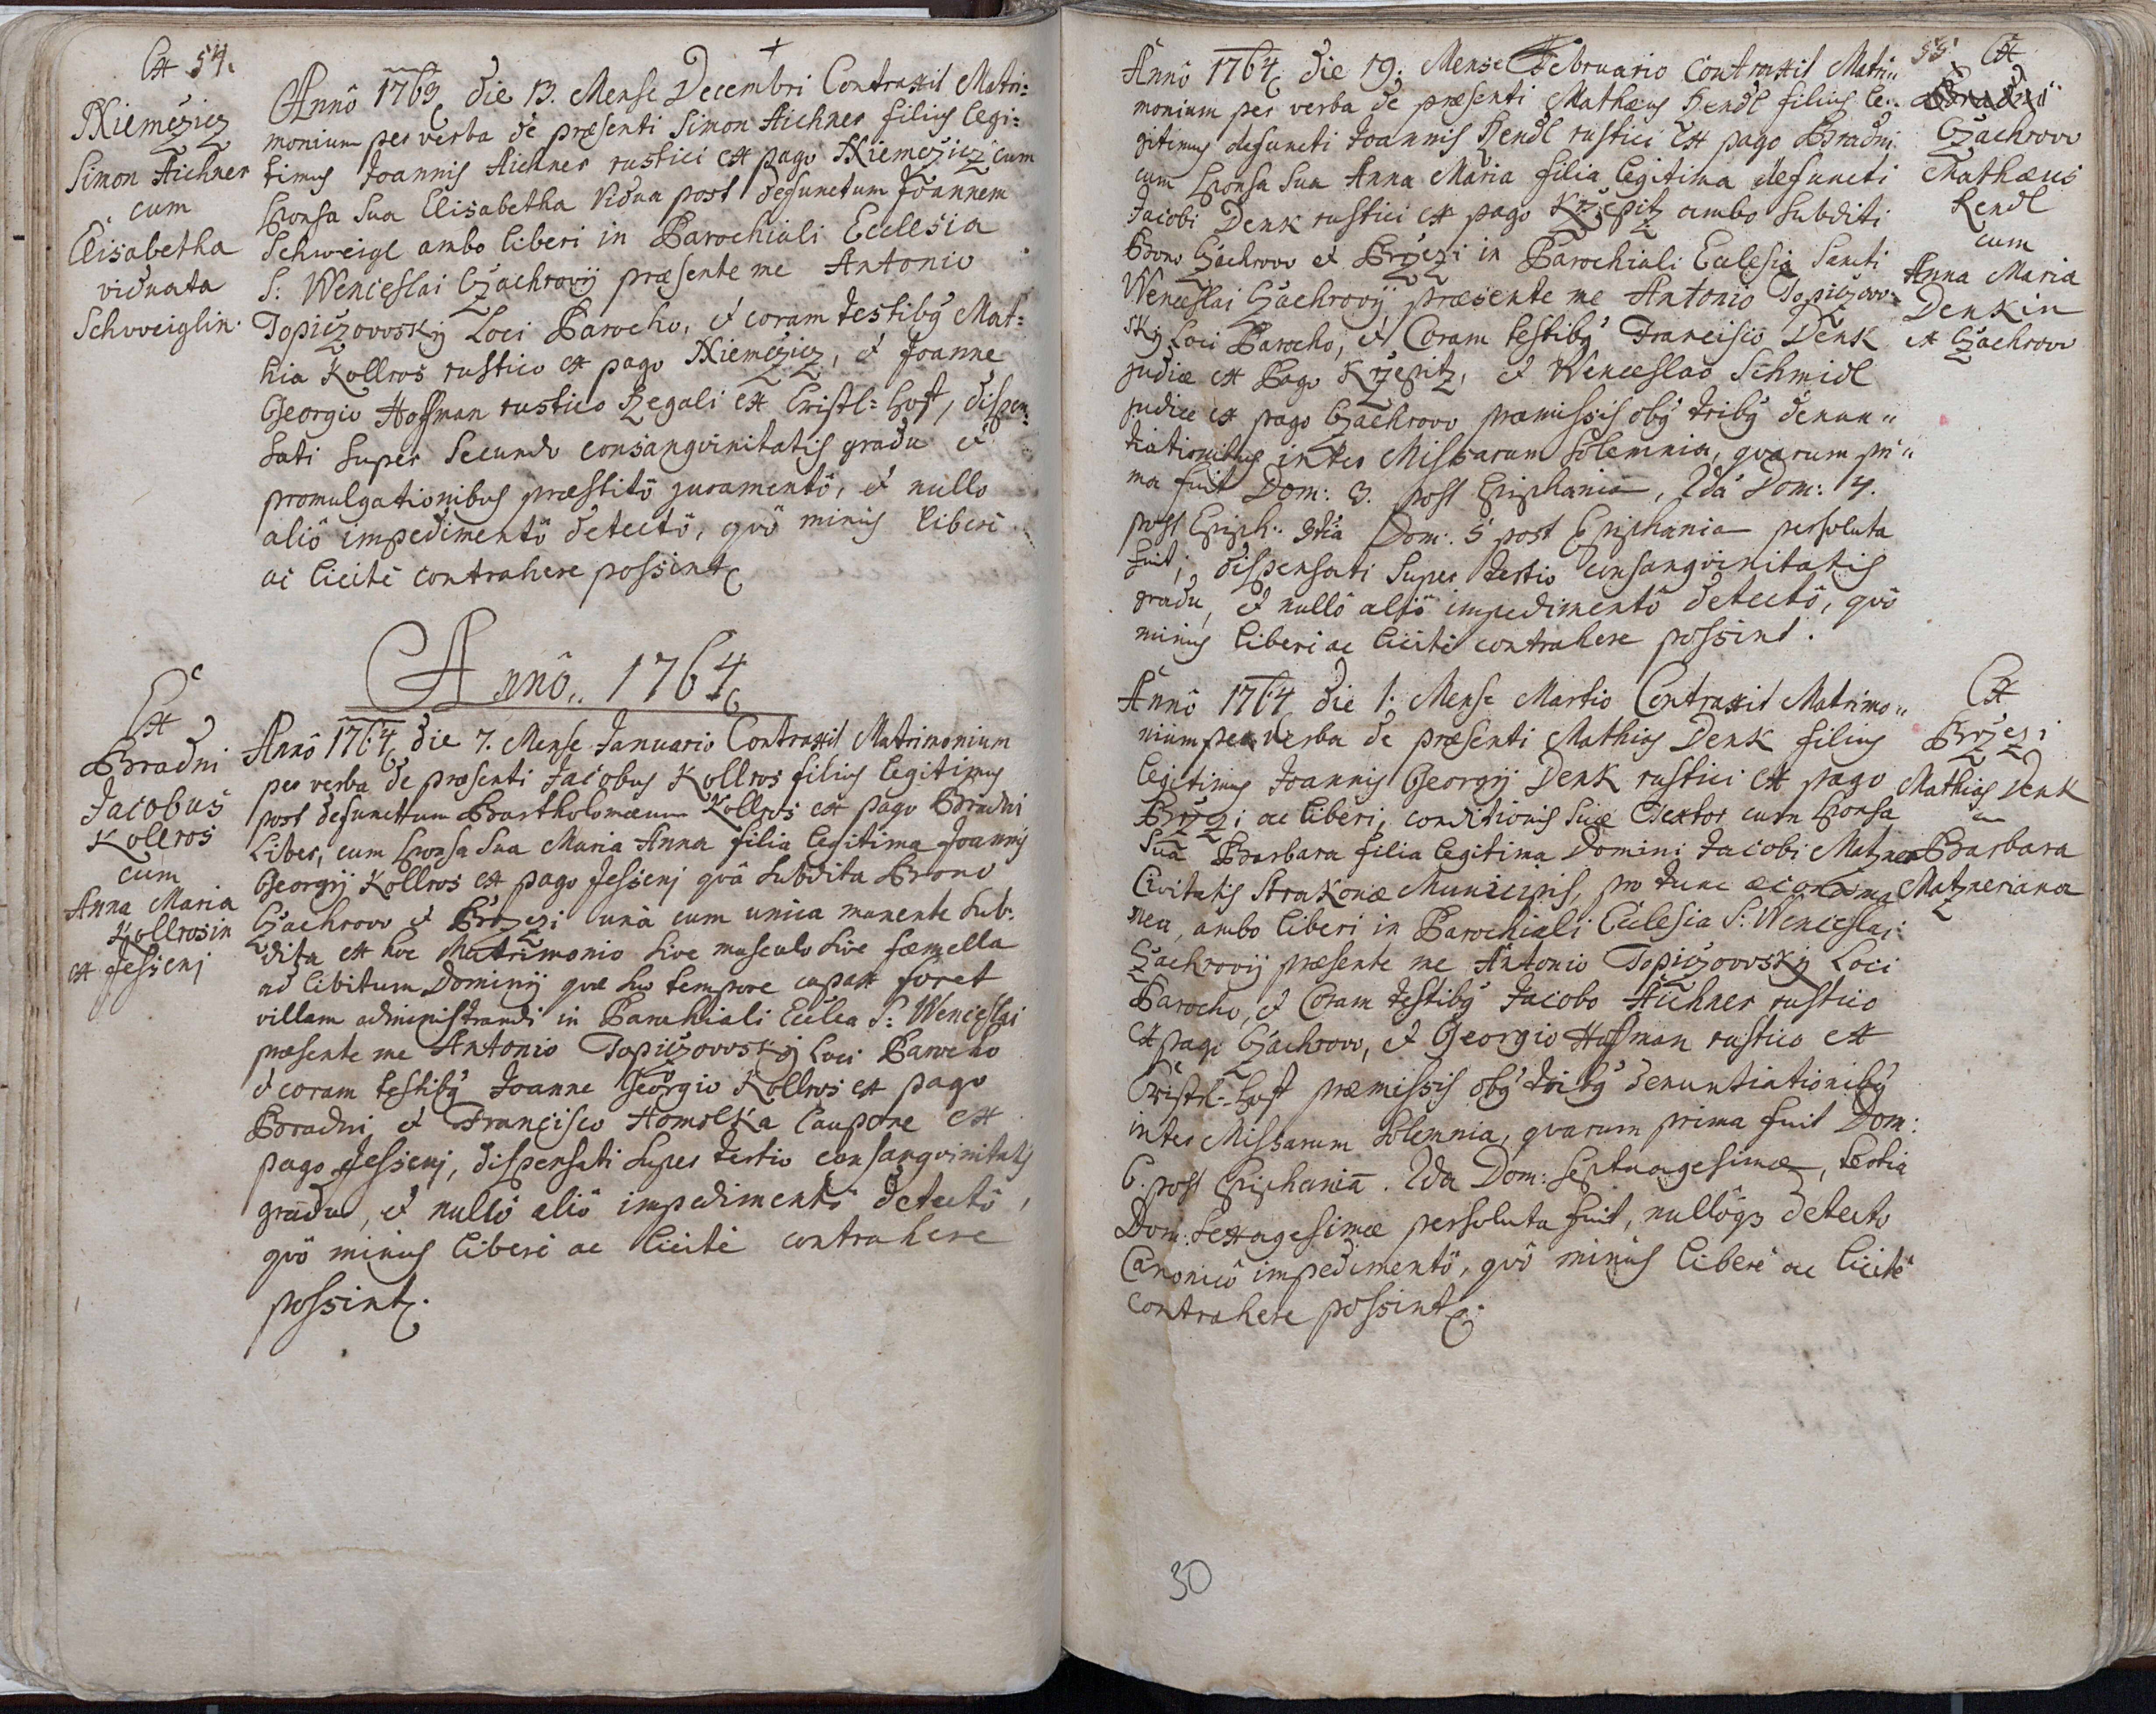 Ex 54.
Niemczicz
Simon Aichner
cum
Elisabetha
viduata
Schweiglin.
Annô 1763 die 13. Mense Decembri Contraxit Matri=
monium per verba de præsenti Simon Aichner filius legi=
timus Joannis Aichner rustici ex pago Niemczicz cum
Sponsa Sua Elisabetha Vidua post defunctum Joannem
Schweigl ambo liberi in Parochiali Ecclesia
S: Wenceslai Czachrovij præsente me Antonio
Topiczovvskÿ Loci Parocho, et coram testibg Mat=
hia Kollros rustico ex pago Niemczicz, et Joanne
Georgio Hoffman rustico Regali ex Cristl=Hoff, dispen=
sati super Secundo consangvinitatis gradu et
promulgationibus præstitô juramentô, et nullo
aliô impedimentô detectô, qvô minus liberè
ac licitè contrahere possint.
Annô.. 1764
Ex
Bradni
Jacobus
Kollros
cum
Anna Maria
Kollrosin
ex Jessenj
Annô 1764 die 7. Mense Januario Contraxit Matrimonium
per verba de præsenti Jacobus Kollros filius legitimus
post defunctum Bartholomæum Kollros ex pago Bradni
Liber, cum Sponsa Sua Maria Anna filia legitima Joannis
Georgij Kollros ex pago Jessenj qvâ Subdita Brono
Czachrovv et Brzezi unà cum unica manente Sub=
dita ex hoc Matrimonio Sive masculo Sive fæmella
ad libitum Dominij quæ suo tempore capax foret
villam administrandi in Parochiali Eccl͠a S: Wenceslai
præsente me Antonio Topiczovvskÿ Loci Parocho
et coram testibg Joanne Georgio Kollros ex pago
Bradni et Francisco Homolka Caupone ex
pago Jessenj, dispensati super tertio consangvinitatis
gradu, et nullô aliô impedimentô detectô,
qvô minus liberè ac licitè contrahere
possint.
55 Ex
Bradni
Czachrovv
Mathæus
Rendl
cum
Anna Maria
Denkin
ex Czachrovv
Annô 1764 die 19. Mense Februario Contraxit Matri„
monium per verba de præsenti Mathæus Rendl filius le„
gitimus defuncti Joannis Rendl rustici ex pago Bradni
cum Sponsa Sua Anna Maria filia legitima defuncti
Jacobi Denk rustici ex pago Krzepitz ambo Subditi
Brono Czachrovv et Brzezi in Parochiali Eccl͠esia Sancti
Wenceslai Czachrovij præsente me Antonio Topiczovv=
skÿ Loci Parocho, et Coram testibg Francisco Denk
judice ex Pago Krzepitz, et Wenceslao Schmidl
judice ex pago Czachrovv præmissis obg tribg denun„
tiationibus inter Missarum Solemnia, qvarum pri„
ma fuit Dom: 3. post Epiphania, 2da Dom: 4.
post Epiph: 3tia Dom: 5 post Epiphania persoluta
fuit, dispensati super tertio consangvinitatis
gradu, et nullô aliô impedimentô detectô, qvô
minus liberè ac licitè contrahere possint.
Ex
Brzezi
Mathias Denk
cum
Barbara
Matzneriana
Annô 1764 die 1. Mense Martio Contraxit Matrimo„
nium per verba de præsenti Mathias Denk filius
legitimus Joannis Georgij Denk rustici ex pago
Brzezi ac liberi, conditionis suæ Textor cum Sponsa
Sua Barbara filia legitima Domini Jacobi Matzner
Civitatis Strakonæ Municipis, pro tunc
ambo liberi in Parochiali Ecclesia S: Wenceslai
Czachrovij præsente me Antonio Topiczovvskÿ Loci
Parocho, et Coram testibg Jacobo Aichner rustico
ex pago Czachrovv, et Georgio Hoffman rustico ex
Cristl-Hoff præmissis obg tribg denuntiationibg
inter Missarum Solemnia, qvarum prima fuit Dom:
6. post Epiphania. 2da Dom: Septuagesimæ, tertia
Dom: Sexagesimæ persoluta fuit, nullôqz detecto
Canonicô impedimentô, qvô minus liberè ac licitè
contrahere possint.
30